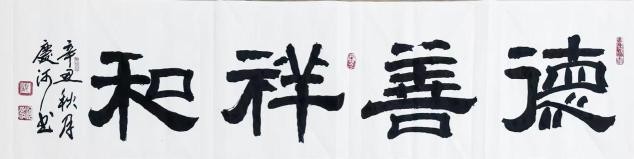 德善祥和
辛丑秋月
慶河書